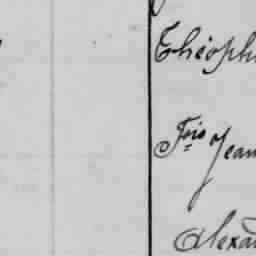 Théoph
Frs Jean
Alexa